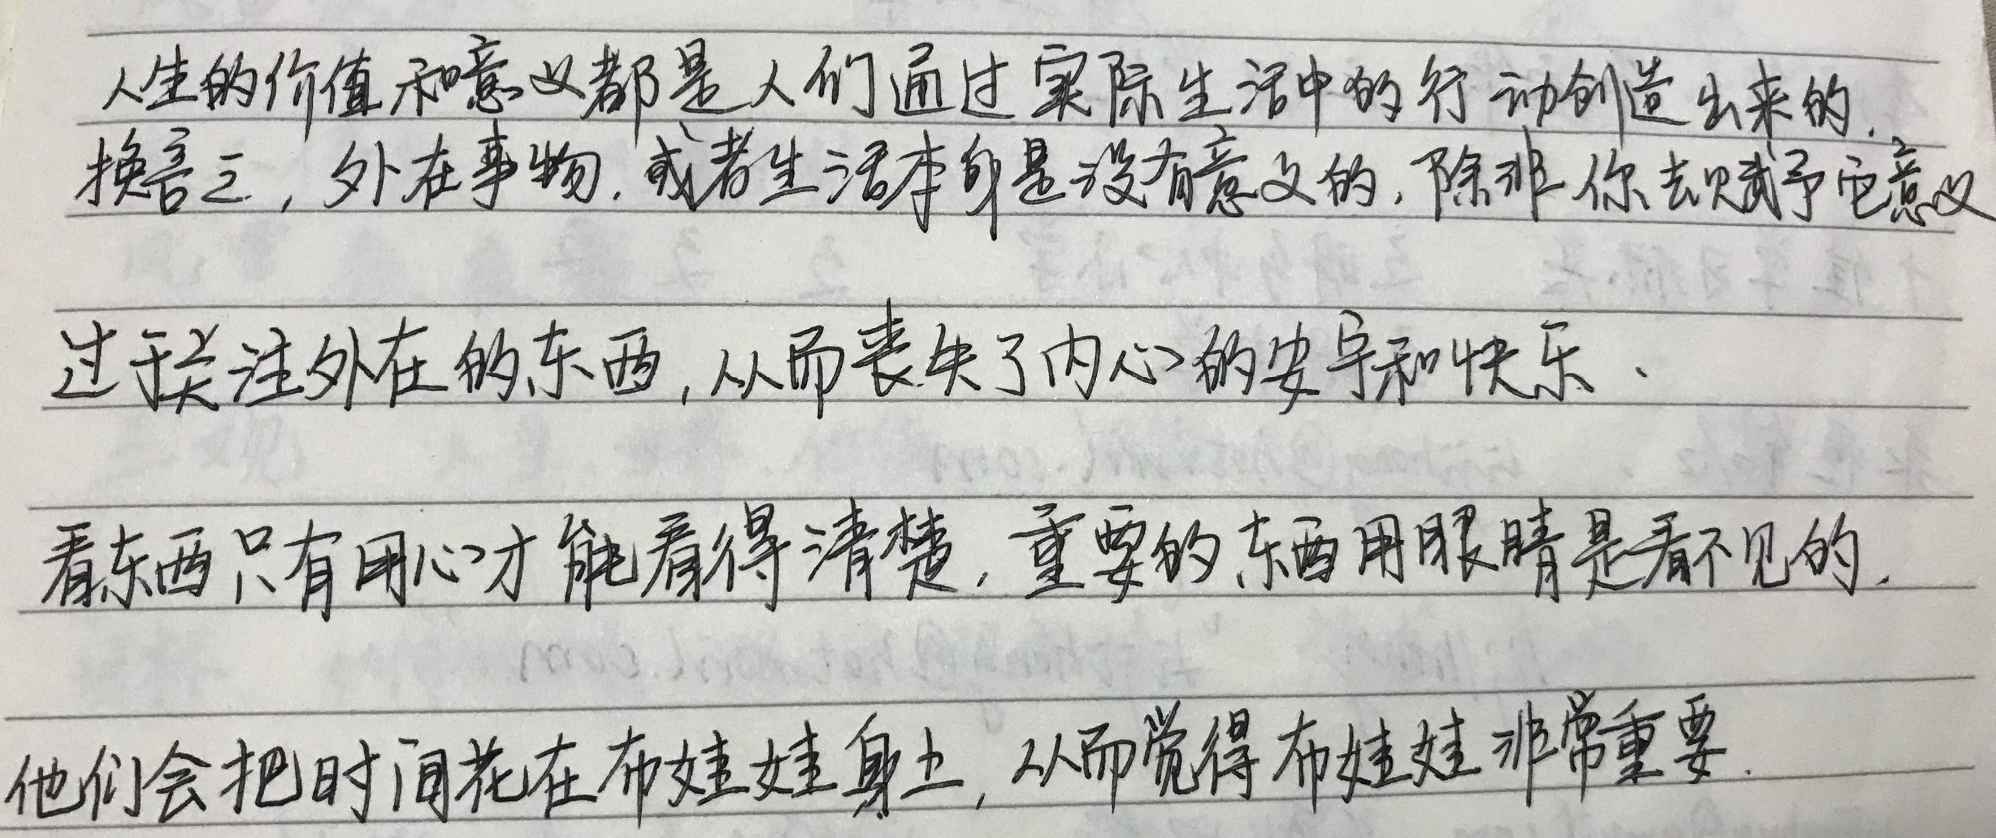 人生的价值和意义都是人们通过实际生活中的行动创造出来的.
换言之,外在事物.或者生活本身是没有意义的.除非你去赋予它意义
过于关注外在的东西,从而丧失了内心的安宁和快乐.
看东西只有用心才能看得清楚.重要的东西用眼睛是看不见的.
他们会把时间花在布娃娃身上,从而觉得布娃娃非常重要.